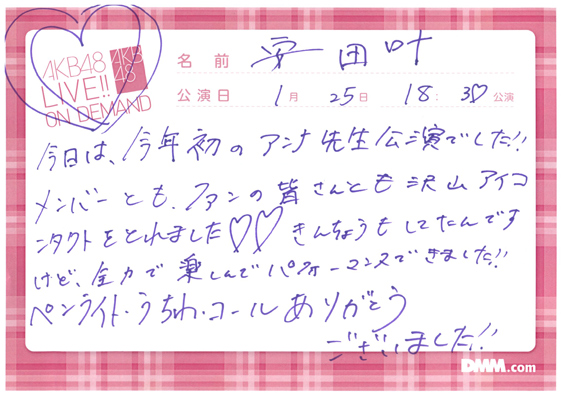 AKB48
LIVE!!
ON DEMAND
AKB
48
名前 安田叶
公演日 1月 25日 18:30公演
今日は、今年初のアンナ先生公演でした!!
メンバーとも、ファンの皆さんとも沢山アイコ
ンタクトをとれました♡♡ きんちょうもしてたんです
けど、全力で楽しんでパフォーマンスできました!!
ペンライト・うちわ・コールありがとう
ございました!!
DMM.com